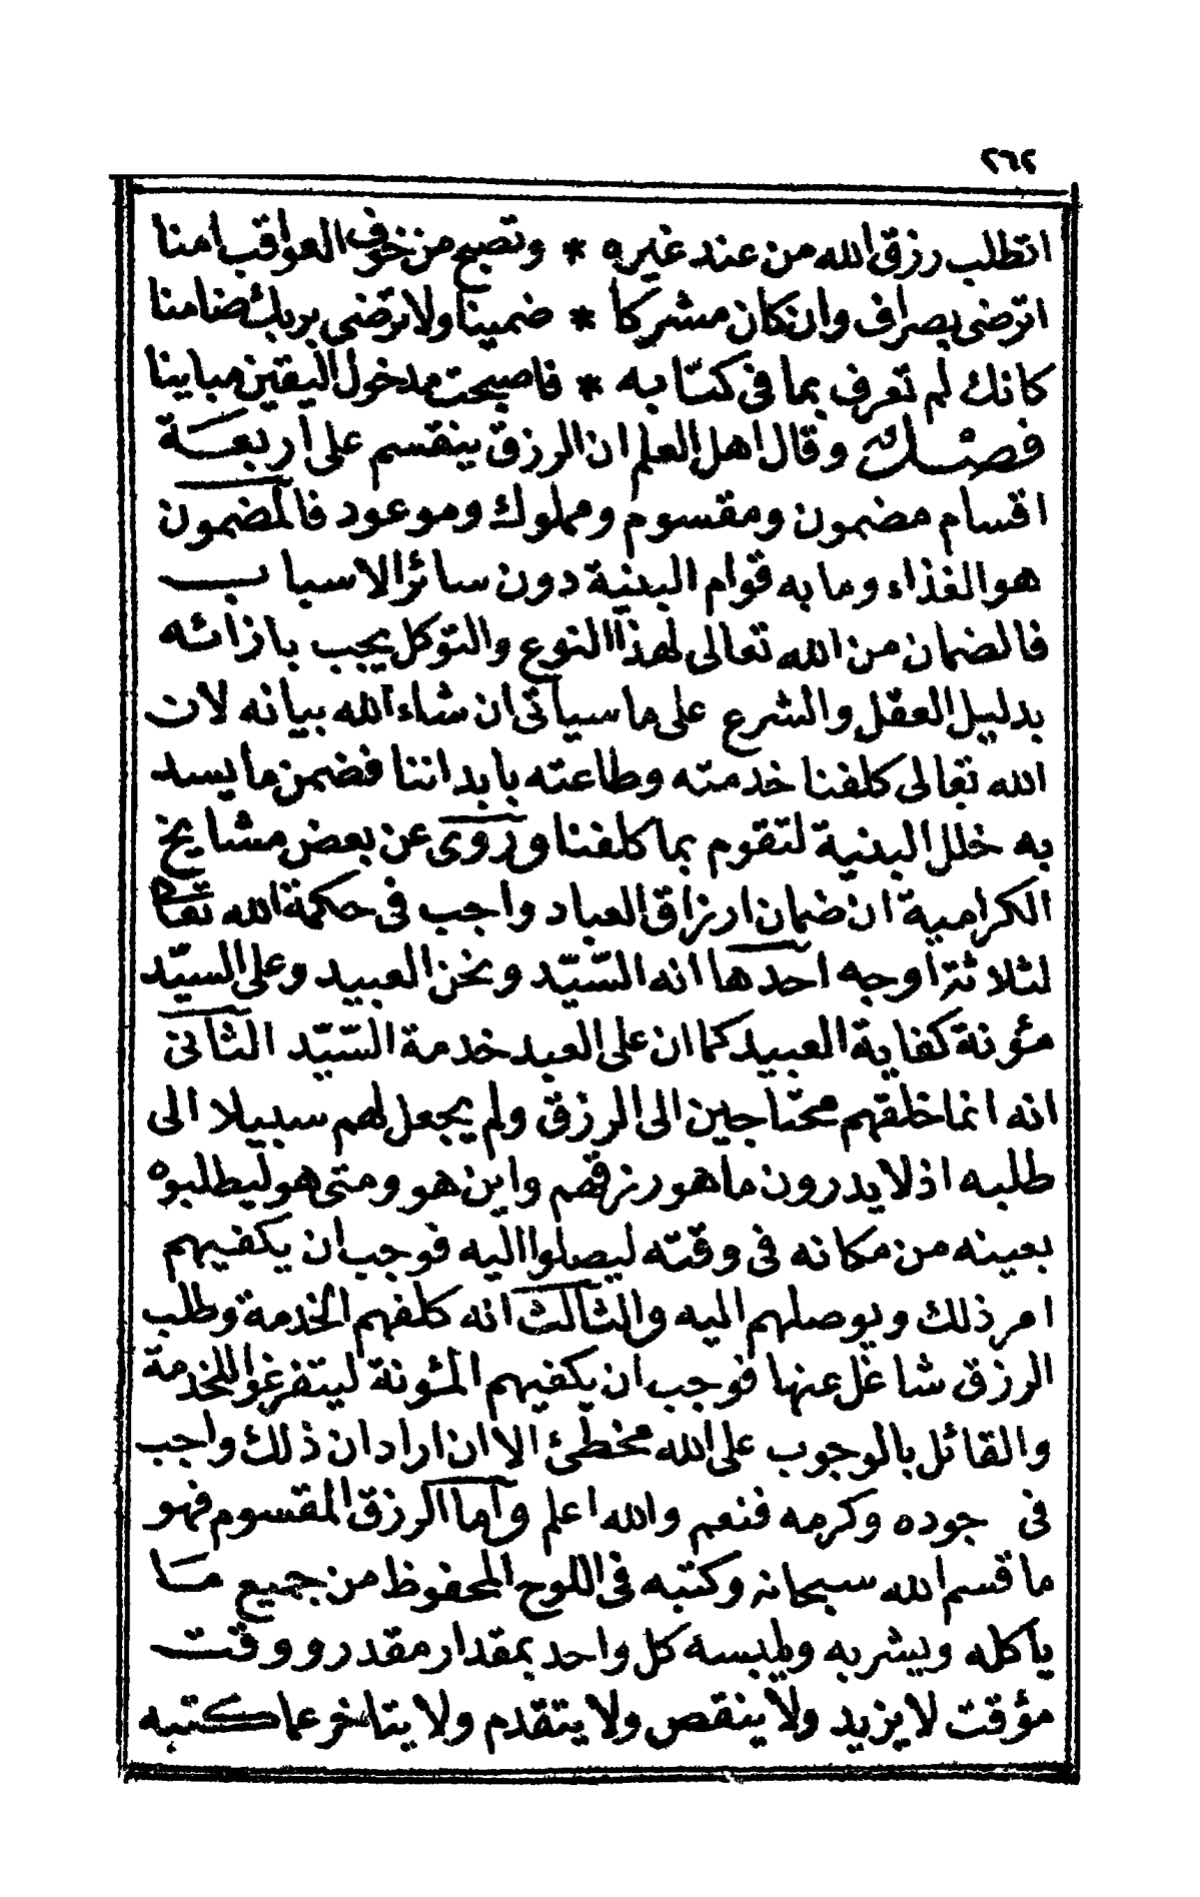 ٢٦٢
اتطلب رزق الله من عند غيره * وتصبح من خوف العواقب امنا
اترضى بصراف وان كان مشركا * ضمينا ولا ترضى بربك ضامنا
كانك لم تعرف بما فى كتابه * فاصبحت مدخول اليقين مباينا
فصل وقال اهل العلم ان الرزق ينقسم على اربعة
اقسام مضمون ومقسوم ومملوك وموعود فالمضمون
هو الغذاء وما به قوام البنية دون سائر الاسباب
فالضمان من الله تعالى لهذا النوع والتوكل يجب بازائه
بدليل العقل والشرع على ما سيأتى ان شاء الله بيانه لان
الله تعالى كلفنا خدمته وطاعته بابداننا فضمن ما يسد
به خلل البنية لتقوم بما كلفنا وروى عن بعض مشايخ
الكرامية ان ضمان ارزاق العباد واجب فى حكمة الله تعالى
لثلاثة اوجه احدها انه السّيّد ونحن العبيد وعلى السيّد
مؤنة كفاية العبيد كما ان على العبد خدمة السّيّد الثانى
انه انما خلقهم محتاجين الى الرزق ولم يجعل لهم سبيلا الى
طلبه اذ لا يدرون ما هو رزقهم واين هو ومتى هو ليطلبوه
بعينه من مكانه فى وقته ليصلوا اليه فوجب ان يكفيهم
امر ذلك ويوصلهم اليه والثالث انه كلفهم الخدمة وطلب
الرزق شاغل عنها فوجب ان يكفيهم المئونة ليتفرغوا للخدمة
والقائل بالوجوب على الله مخطئ الا ان اراد ان ذلك واجب
فى جوده وكرمه فنعم والله اعلم وأما الرزق المقسوم فهو
ما قسم الله سبحانه وكتبه فى اللوح المحفوظ من جميع مَا
يأكله ويشربه ويلبسه كل واحد بمقدار مقدر ووقت
مؤقت لا يزيد ولا ينقص ولا يتقدم ولا يتاخر عما كتبه